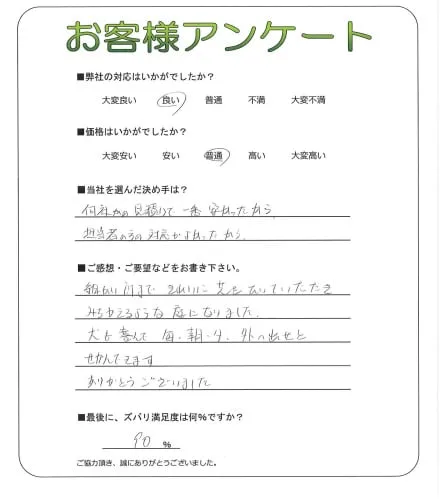 お客様アンケート
■弊社の対応はいかがでしたか？
大変良い 良い 普通 不満 大変不満
■価格はいかがでしたか？
大変安い 安い 普通 高い 大変高い
■当社を選んだ決め手は？
何社かの見積りで一番安かったから
担当者の方の対応がよかったから
■ご感想・ご要望などをお書き下さい。
細かい所まできれいに していただき
みちがえるような庭になりました。
犬も喜んで毎 朝・夕、外へ出せと
せがんできます
ありがとうございました
■最後に、ズバリ満足度は何％ですか？
90 ％
ご協力頂き、誠にありがとうございました。